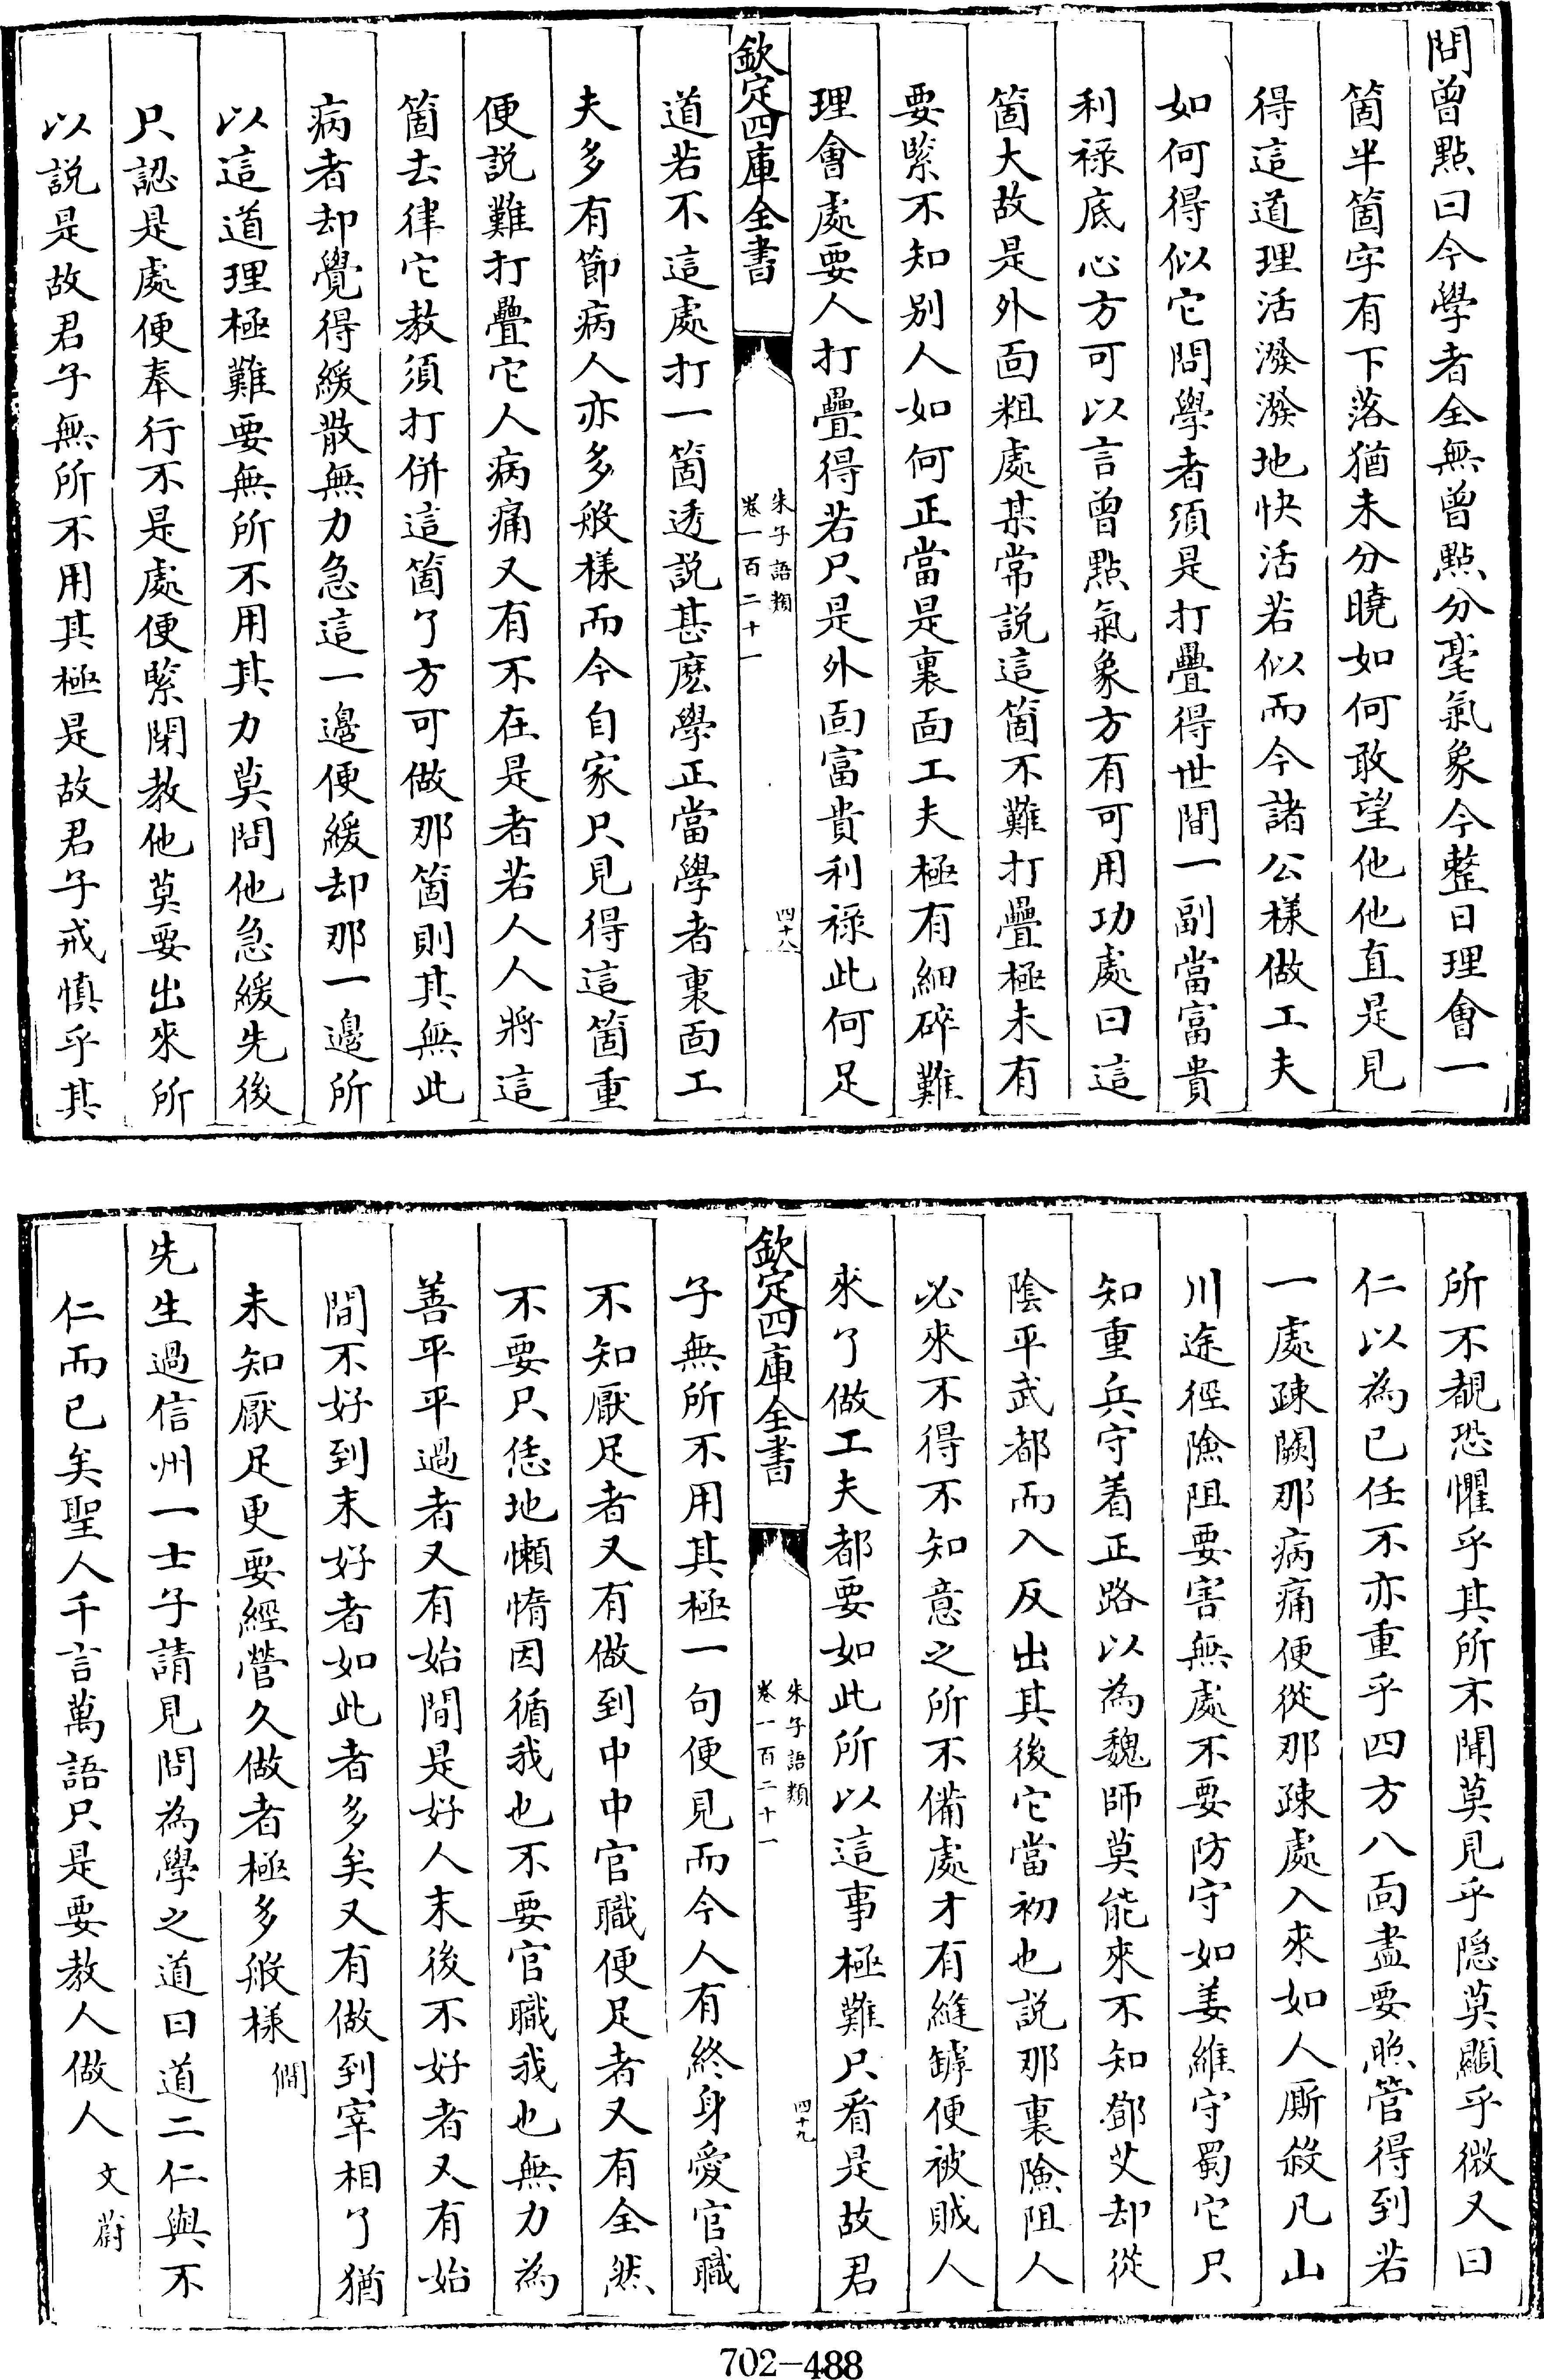 問曾㸃曰今學者全無曾㸃分毫氣象今整日理會一
箇半箇字有下落猶未分曉如何敢望他他直是見
得這道理活潑潑地快活若似而今諸公様做工夫
如何得似它問學者須是打疊得世間一副當富貴
利祿底心方可以言曾㸃氣象方有可用功處曰這
箇大故是外面粗處某常説這箇不難打疊極未有
要緊不知别人如何正當是裏面工夫極有細碎難
理會處要人打疊得若只是外面富貴利祿此何足
欽定四庫全書
朱子語類
卷一百二十一
四十八
道若不這處打一箇透説甚麽學正當學者裏面工
夫多有節病人亦多般様而今自家只見得這箇重
便説難打疊它人病痛又有不在是者若人人將這
箇去律它教須打併這箇了方可做那箇則其無此
病者却覺得緩散無力急這一邊便緩却那一邊所
以這道理極難要無所不用其力莫問他急緩先後
只認是處便奉行不是處便緊閉教他莫要出來所
以説是故君子無所不用其極是故君子戒慎乎其
所不覩恐懼乎其所不聞莫見乎隠莫顯乎微又曰
仁以為已任不亦重乎四方八面盡要照管得到若
一處踈闕那病痛便從那踈處入來如人厮殺凡山
川途徑險阻要害無處不要防守如姜維守蜀它只
知重兵守着正路以為魏師莫能來不知鄧艾却從
陰平武都而入反出其後它當初也説那裏險阻人
必來不得不知意之所不備處才有縫罅便被賊人
來了做工夫都要如此所以這事極難只看是故君
欽定四庫全書
朱子語類
卷一百二十一
四十九
子無所不用其極一句便見而今人有終身愛官職
不知厭足者又有做到中中官職便足者又有全然
不要只恁地懶惰因循我也不要官職我也無力為
善平平過者又有始間是好人末後不好者又有始
間不好到末好者如此者多矣又有做到宰相了猶
未知厭足更要經營久做者極多般様 僩
先生過信州一士子請見問為學之道曰道二仁與不
仁而已矣聖人千言萬語只是要教人做人 文蔚
702-488